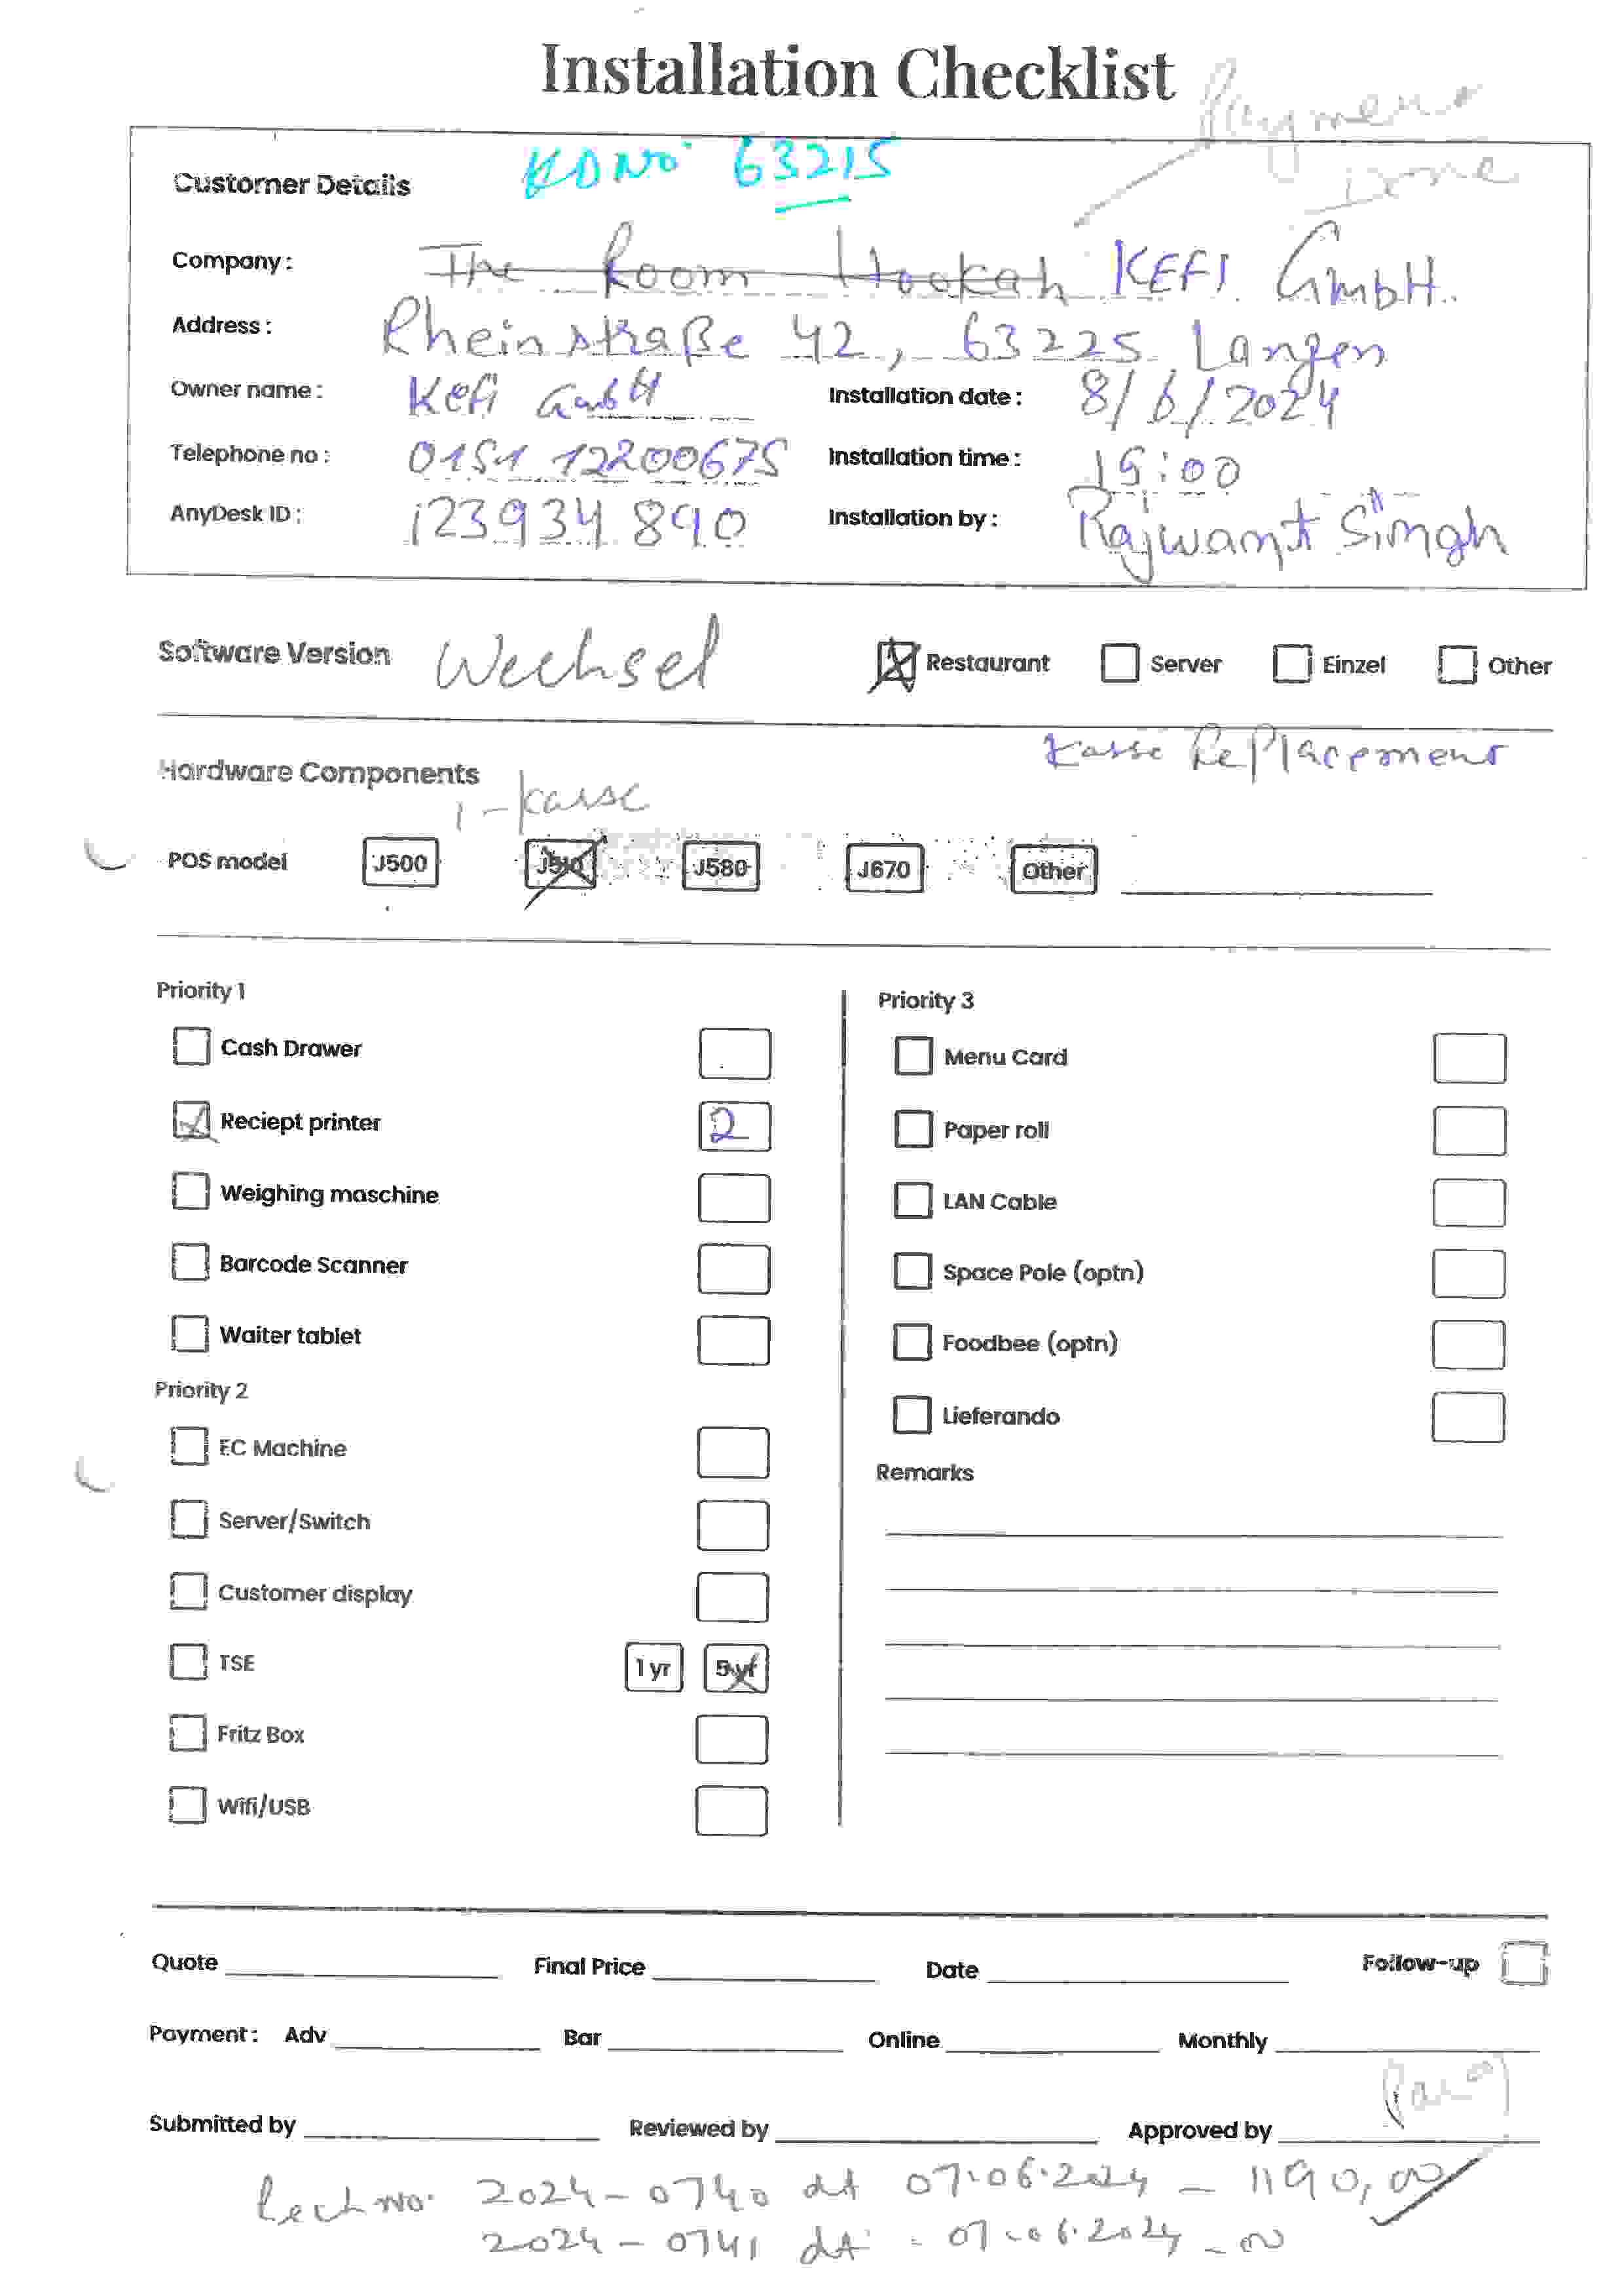 Installation Checklist
Payment
Done
Customer Details KD No 63215
Company: The Room Hookah KEFI GmbH.
Address: Rheinstraße 42, 63225 Langen
Owner name: Kefi GmbH Installation date: 8/6/2024
Telephone no: 0151 12200675 Installation time: 15:00
AnyDesk ID: 123934890 Installation by: Rajwant Singh
Software Version Wechsel Restaurant Server Einzel Other
Kasse Replacement
Hardware Components
1-Kasse
POS model J500 J510 J580 J670 Other
Priority 1
Cash Drawer
Reciept printer 2
Weighing maschine
Barcode Scanner
Waiter tablet
Priority 2
EC Machine
Server/Switch
Customer display
TSE 1 yr 5 yr
Fritz Box
Wifi/USB
Priority 3
Menu Card
Paper roll
LAN Cable
Space Pole (optn)
Foodbee (optn)
Lieferando
Remarks
Quote Final Price Date Follow-up
Payment: Adv Bar Online Monthly
Submitted by Reviewed by Approved by
Rech No. 2024-0740 dt 07.06.2024 - 1190,00
2024-0741 dt. 07.06.2024 - 00